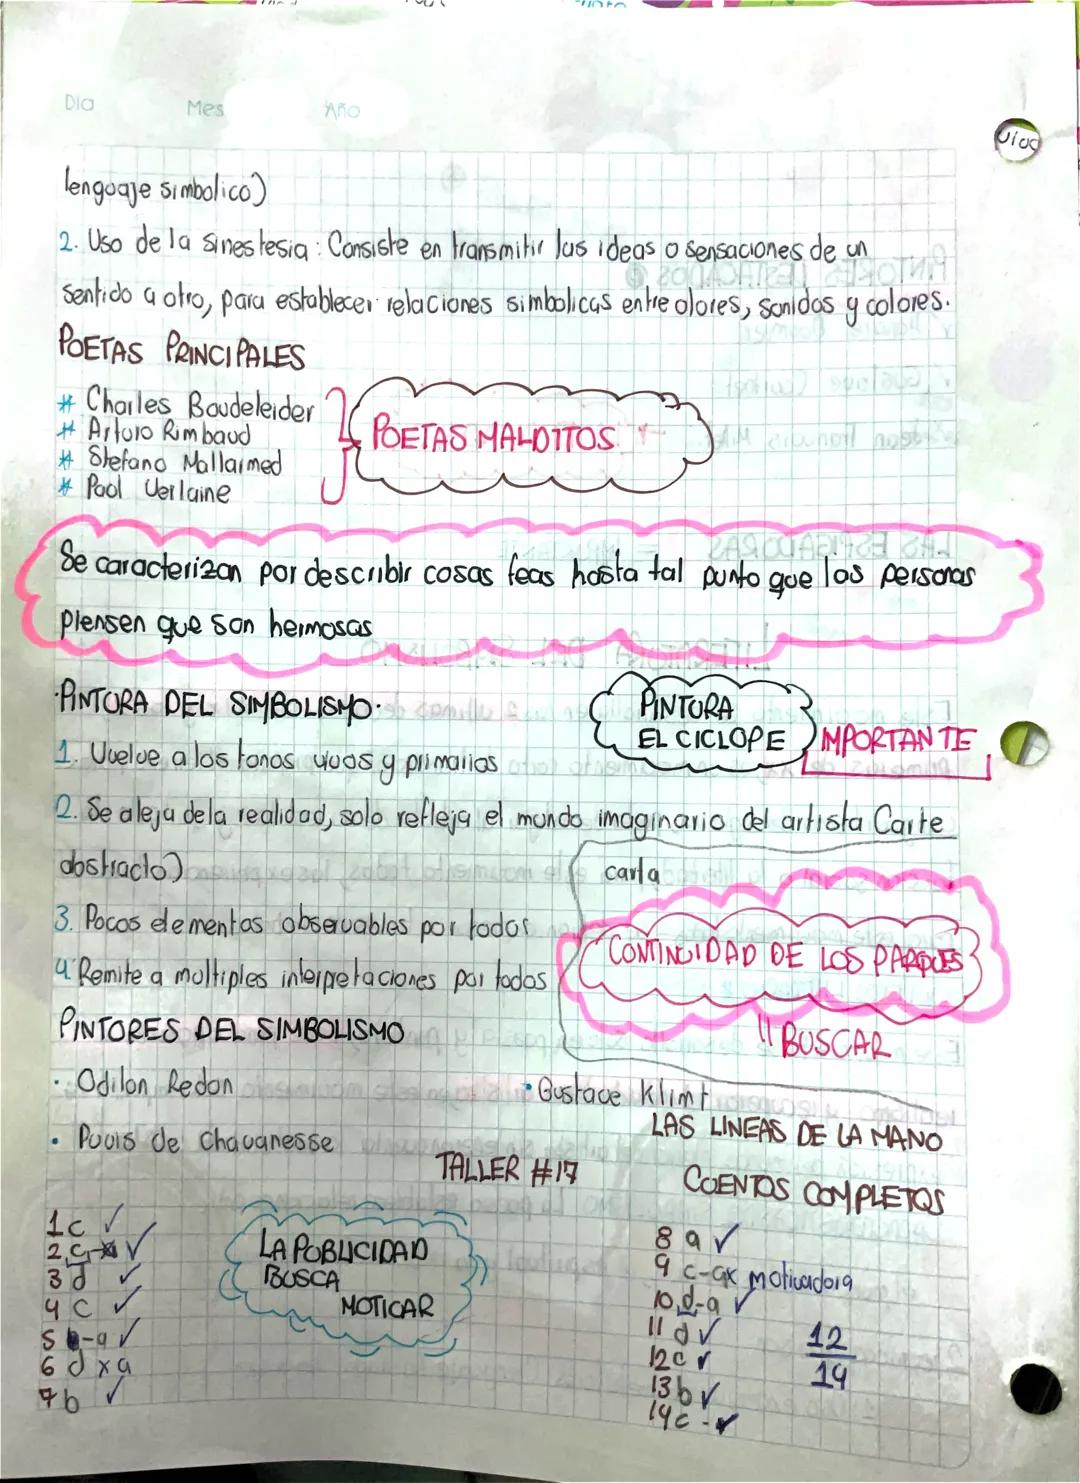 Dia Mes Año
lenguaje simbolico)
2. Uso de la sinestesia: Consiste en transmitir las ideas o sensaciones de un
sentido a otro, para establecer relaciones simbolicas entre olores, sonidos y colores.
POETAS PRINCIPALES
* Charles Baudeleider
* Arturo Rimbaud
* Stefano Mallarmed
* Paol Verlaine
POETAS MALDITOS
Se caracterizan por describir cosas feas hasta tal punto que las personas
piensen que son hermosas
·PINTURA DEL SIMBOLISMO·
PINTURA
EL CICLOPE
IMPORTANTE
1. Vuelve a los tonos vivos y primarios
2. Se aleja de la realidad, solo refleja el mundo imaginario del artista (arte
abstracto)
carla
3. Pocos elementos observables por todos
CONTINUIDAD DE LOS PARQUES
4. Remite a multiples interpretaciones por todos
BUSCAR
PINTORES DEL SIMBOLISMO
· Odilon Redon
· Gustave Klimt
LAS LINEAS DE LA MANO
· Puvis de Chavanesse
TALLER #17
CUENTOS COMPLETOS
1 c ✓
2 c-x ✓
3 d ✓
4 c ✓
5 -a ✓
6 d x a
7 b ✓
LA PUBLICIDAD
BUSCA
MOTICAR
8 a ✓
9 c-ax motivadora
10 d-a ✓
11 d ✓
12 c ✓
13 b ✓
14 c - ✓
12
14